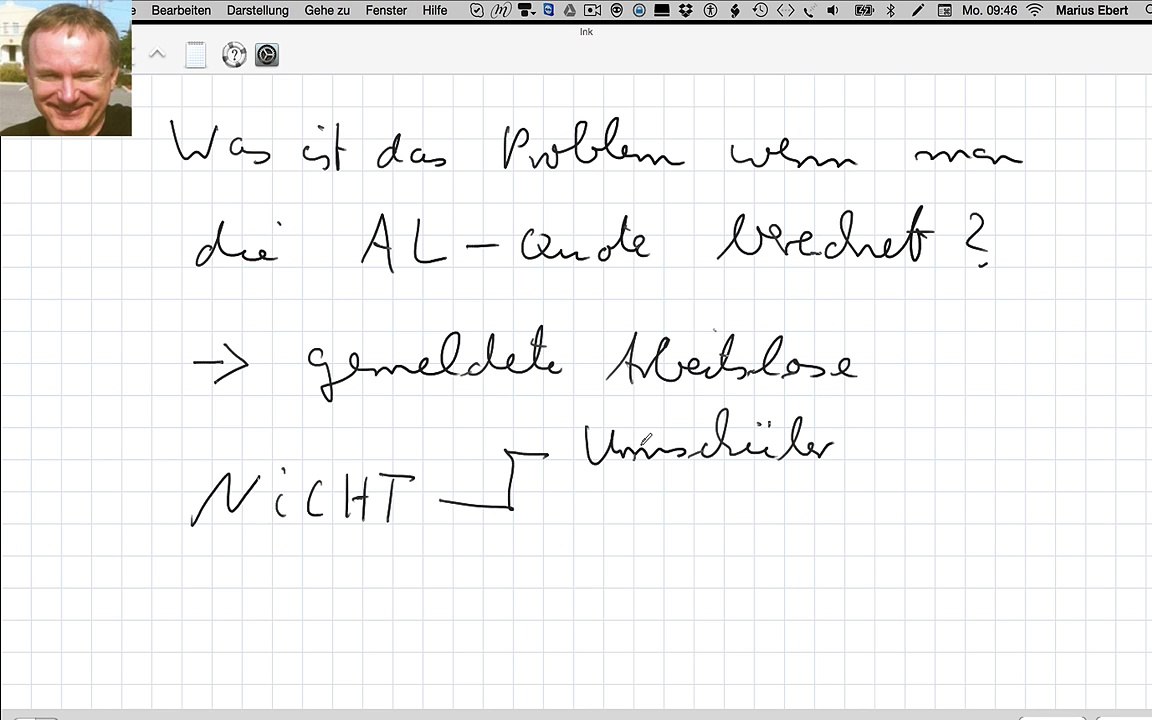 Bearbeiten Darstellung Gehe zu Fenster Hilfe Mo. 09:46 Marius Ebert
Ink
Was ist das Problem wenn man
die AL-Quote berechnet?
-> gemeldete Arbeitslose
NiCHT Umschüler